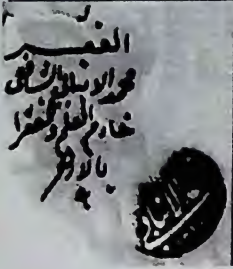 الفقير
محمد الانبابى الشافعى
خادم العلم والفقرا
بالازهر
الانبابى